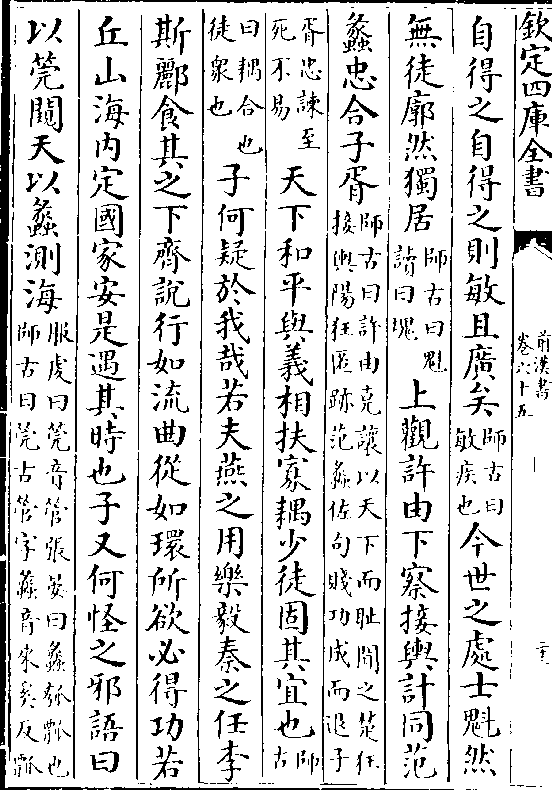 欽定四庫全書
前漢書
卷六十五
自得之自得之則敏且廣矣師古曰敏疾也今世之處士魁然
無徒廓然獨居師古曰魁讀曰塊上觀許由下察接輿計同范
蠡忠合子胥師古曰許由堯讓以天下而耻聞之楚狂接輿陽狂匿跡范蠡佐句賤功成而退子
胥忠諫至死不易天下和平與義相扶寡耦少徒固其宜也師古
曰耦合也徒衆也子何疑於我哉若夫燕之用樂毅秦之任李
斯酈食其之下齊說行如流曲從如環所欲必得功若
丘山海内定國家安是遇其時也子又何怪之邪語曰
以筦闚天以蠡測海服虔曰筦音管張晏曰蠡瓠瓢也師古曰筦古管字蠡音來奚反瓢